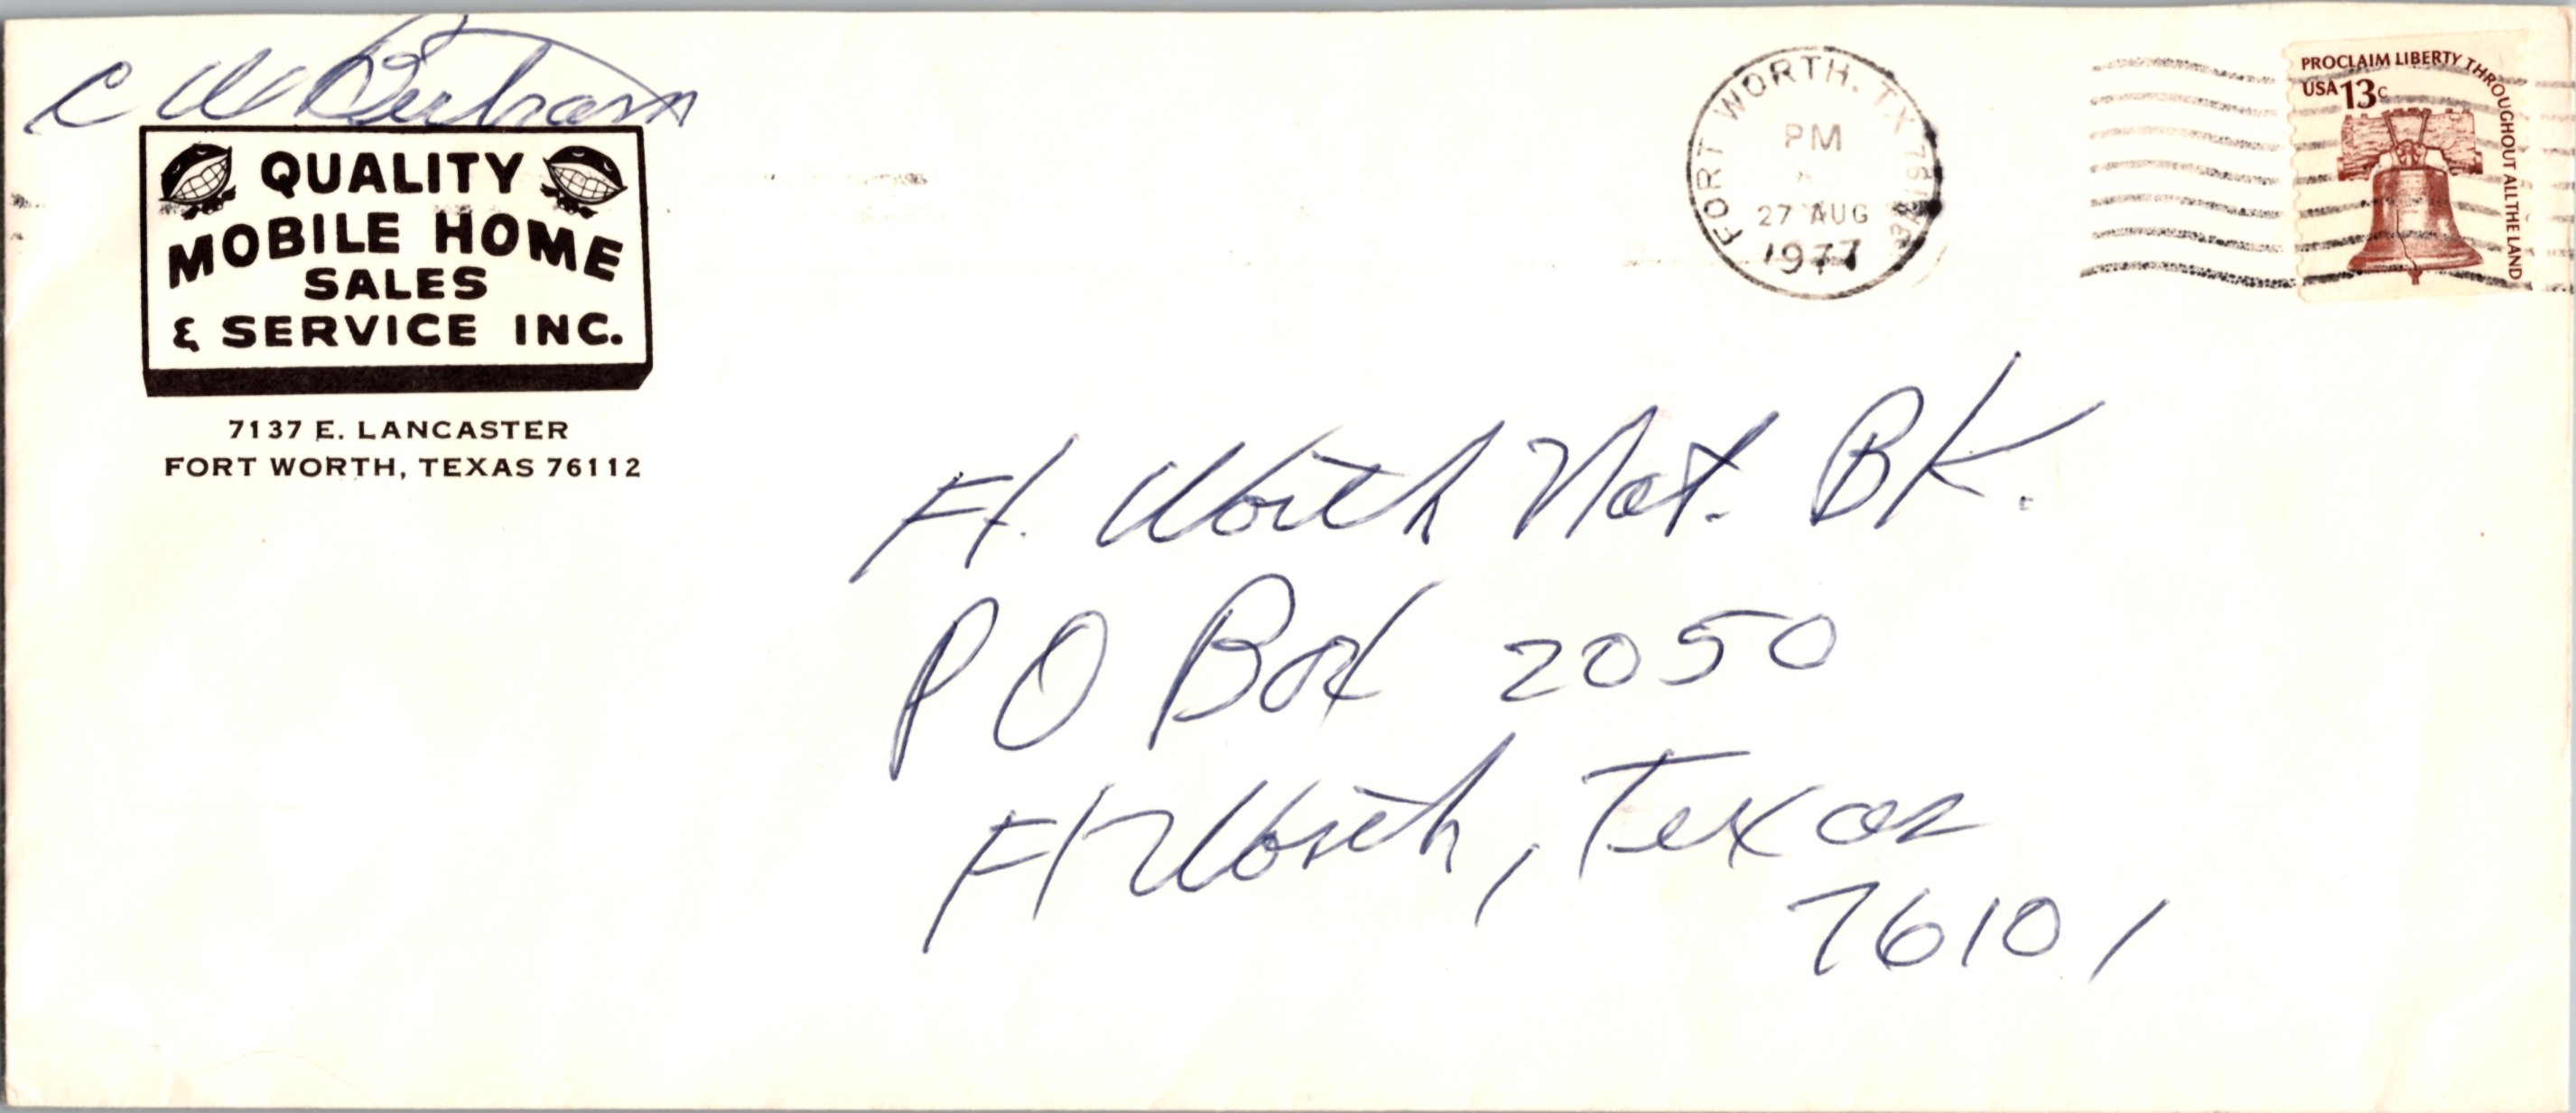 C W Bertram
QUALITY
MOBILE HOME
SALES
& SERVICE INC.
7137 E. LANCASTER
FORT WORTH, TEXAS 76112
FORT WORTH, TX
PM
27 AUG
1977
PROCLAIM LIBERTY THROUGHOUT ALL THE LAND
USA 13c
Ft. Worth Nat. BK.
PO Box 2050
Ft Worth, Texas
76101